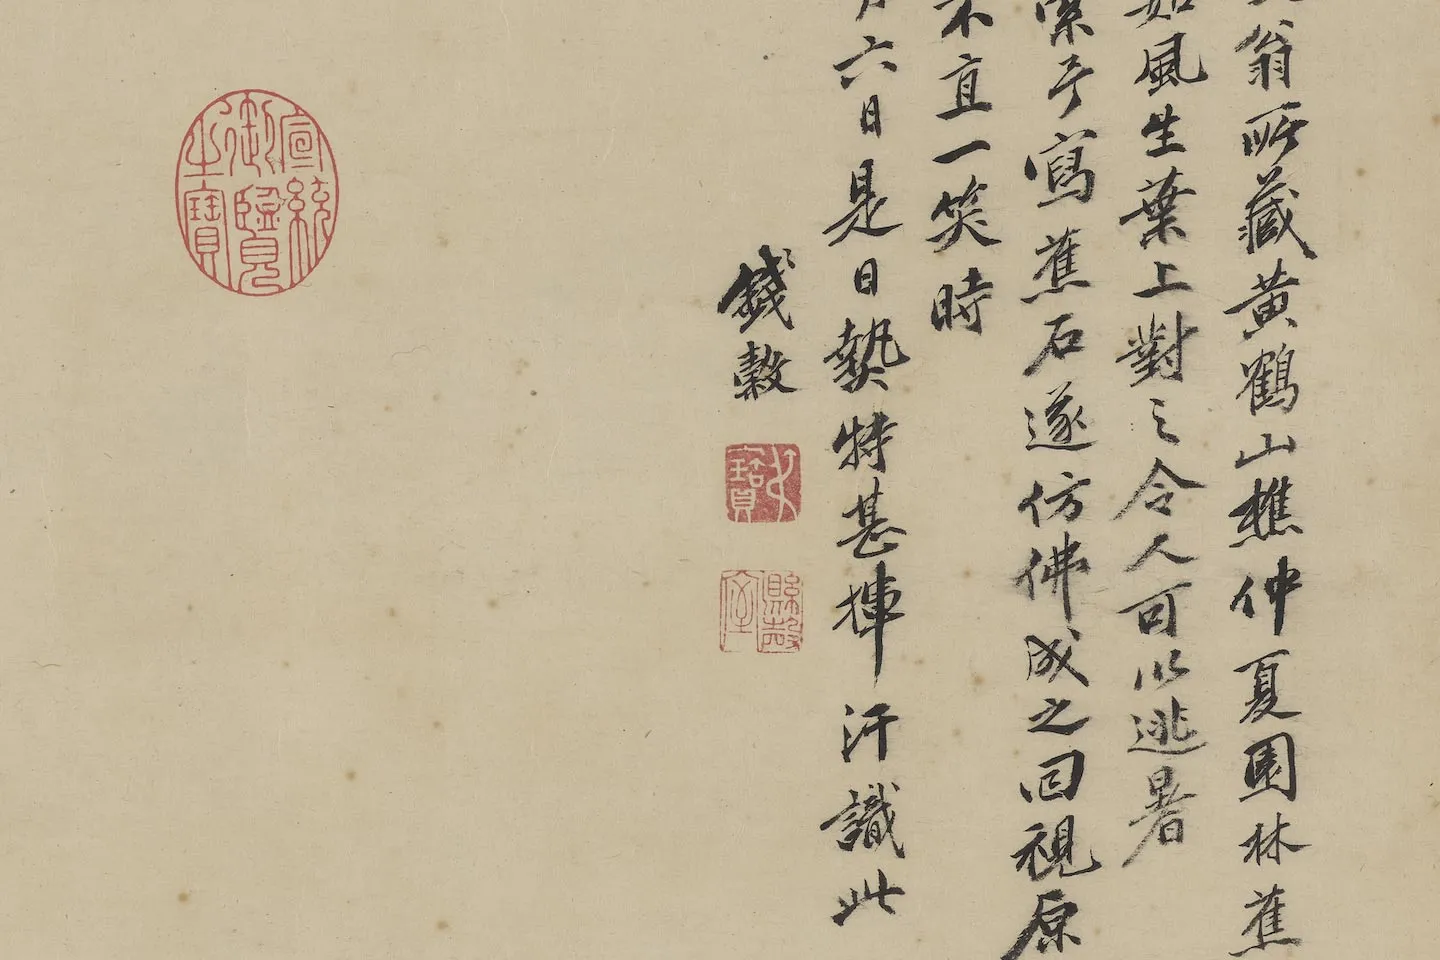 翁所藏黄鶴山樵仲夏園林蕉
如風生葉上對之令人可以逃暑
索予寫蕉石遂仿佛成之回視原
不直一笑時
月六日是日熱特甚揮汗識此
錢穀
宣統御覽之寶
縣罄室